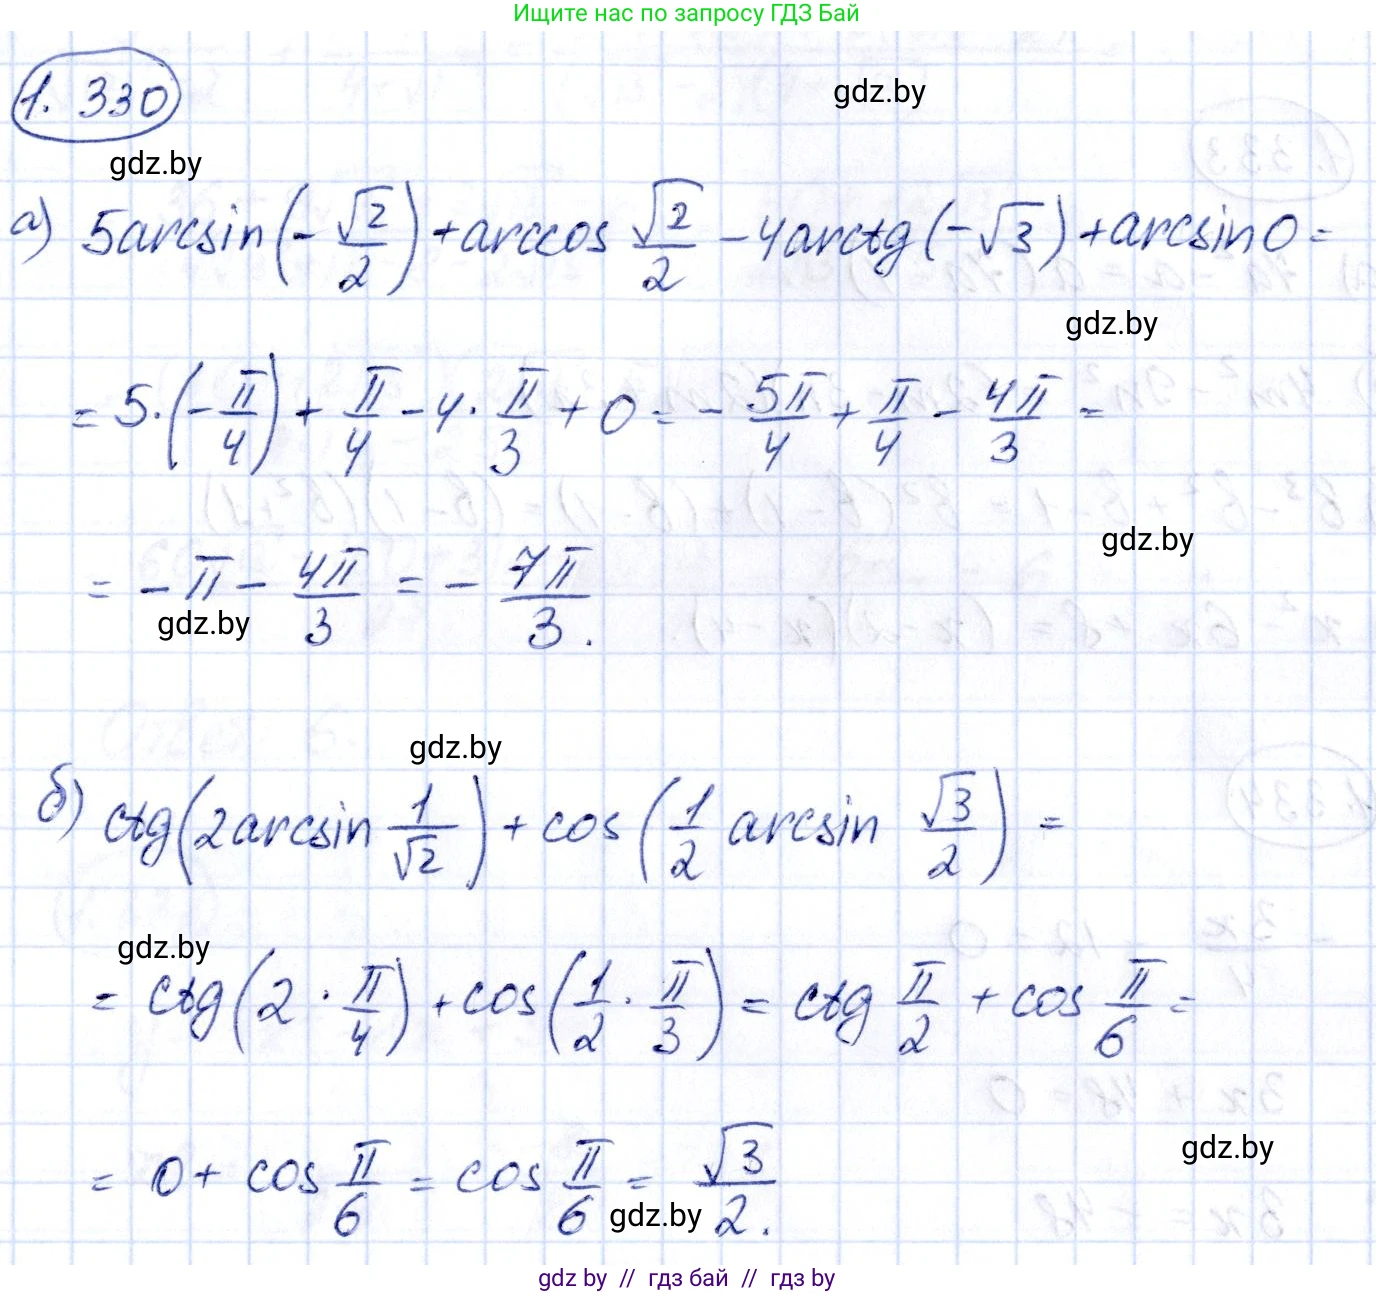 Ищите нас по запросу ГДЗ Бай
1. 330
gdz.by
gdz.by
а) 5arcsin(-√2/2)+arccos √2/2 -4arctg(-√3)+arcsin0=
gdz.by
= 5·(-π/4)+ π/4 -4· π/3 + 0 = - 5π/4 + π/4 - 4π/3 =
gdz.by
= -π- 4π/3 = - 7π/3.
gdz.by
gdz.by
б) ctg(2arcsin 1/√2)+cos(1/2 arcsin √3/2) =
gdz.by
= ctg(2 · π/4)+cos(1/2 · π/3) = ctg π/2 + cos π/6 =
gdz.by
= 0+ cos π/6 = cos π/6 = √3/2.
gdz.by
gdz by // гдз бай // гдз by